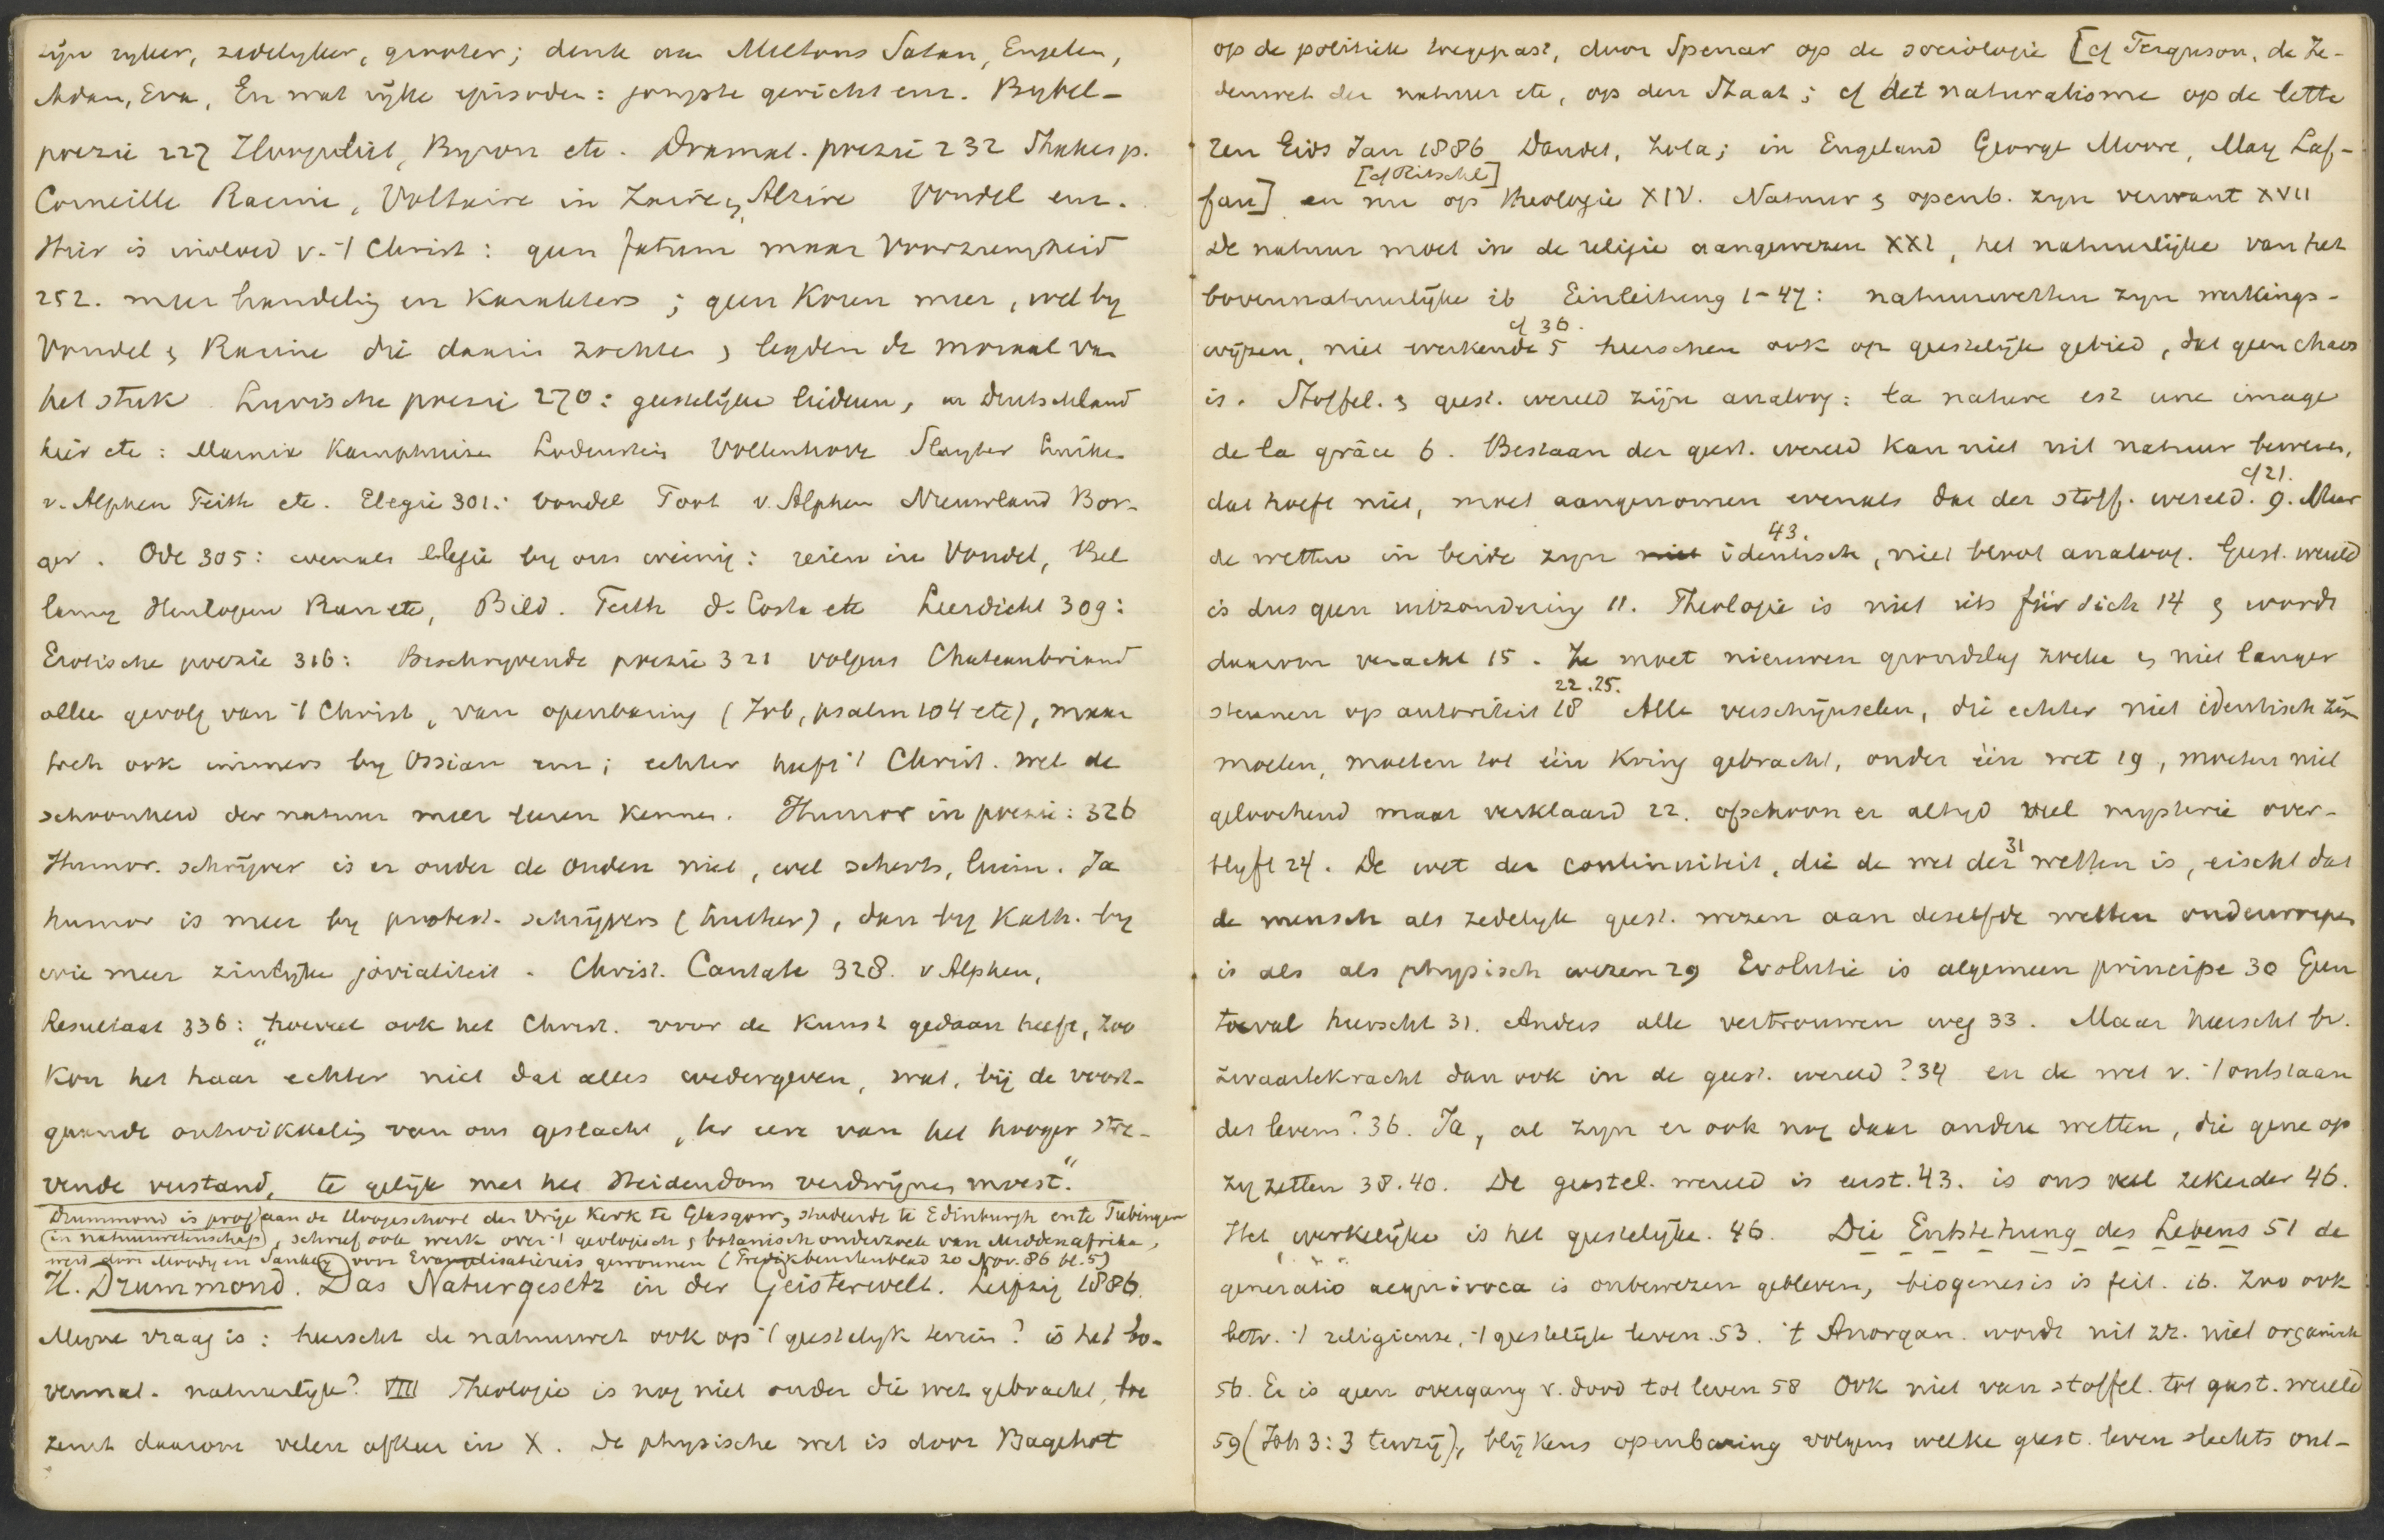 zijn ryker, zedelyker, grooter; denk aan Miltons Satan, Engelen,
Adam, Eva, En wat rijke episoden: jongste gericht enz. Bybel-
poezie 227 Hoogvliet, Byron etc. Dramat. poezie 232 Shakesp.
Corneille Racine, Voltaire in Zaire, Alzire Vondel enz.
Hier is invloed v. 't Christ: geen fatum maar Voorzienigheid
252. meer handeling en karakters; geen Koren meer, wel by
Vondel & Racine die daarin zochten & legden de moraal van
het stuk. Lyrische poezie 270: geestelijke liederen, in Duitschland
hier etc: Marnix Kamphuizen Lodenstein Vollenhove Sluyter Luiken
v. Alphen Feith etc. Elegie 301: Vondel Poot v. Alphen Nieuwland Bor-
ger. Ode 305: evenals Elegie by ons weinig: reien in Vondel, Bel
lamy Hoogvliet Rau etc, Bild. Feith da Costa etc Leerdicht 309:
Erotische poezie 316: Beschryvende poezie 321 volgens Chateaubriand
alleen gevolg van 't Christ, van openbaring (Job, psalm 104 etc), maar
toch ook immers by Ossian enz; echter heeft 't Christ. wel de
schoonheid der natuur meer leeren kennen. Humor in poezie: 326
Humor. schrijver is er onder de Ouden niet, wel scherts, luim. Ja
humor is meer by protest. schrijvers (Luther), dan by Kath. by
wie meer zinlijke jovialiteit. Christ. Cantate 328. v Alphen,
Resultaat 336: "hoeveel ook het Christ. voor de Kunst gedaan heeft, zoo
kon het haar echter niet dat alles wedergeven, wat, bij de voort-
gaande ontwikkeling van ons geslacht, ter eere van het hooger stre-
vende verstand, te gelijk met het Heidendom verdwijnen moest."
Drummond is prof aan de Hoogeschool der Vrije Kerk te Glasgow, studeerde te Edinburgh en te Tubingen
(in natuurwetenschap), schreef ook werk over 't geologisch & botanisch onderzoek van Middenafrika,
werd door Moody en Sankey voor Evangelisatiereis gewonnen (Predikbeurtenblad 20 Nov. 86 bl. 5)
H. Drummond. Das Naturgesetz in der Geisterwelt. Leipzig 1886.
Myne vraag is: heerscht de natuurwet ook op 't geestelyk terrein? is het bo-
vennat. natuurlyk? VIII Theologie is nog niet onder die wet gebracht, toe
zeurt daarom velen afkeer in X. De physische wet is door Bagehot
op de politiek toegepast, door Spencer op de sociologie [cf Ferguson, de Ze-
denwet der natuur etc, op den Staat; cf het naturalisme op de lette
ren Gids Jan 1886 Daudet, Zola; in Engeland George Moore, May Laf-
[cf Ritschl]
fan] en nu op theologie XIV. Natuur & openb. zyn verwant XVII
De natuur moet in de religie aangewezen XXI, het natuurlijke van het
bovennatuurlijke ib Einleitung 1-47: natuurwetten zyn werkings-
cf 36.
wijzen, niet werkende 5 heerschen ook op geestelijk gebied, dat geen chaos
is. Stoffel. & geest. wereld zijn analoog: la nature est une image
de la grâce 6. Bestaan der geest. wereld kan niet uit natuur bewezen,
cf 21.
dat hoeft niet, moet aangenomen evenals dat der stoff. wereld. 9. Maar
43.
de wetten in beide zyn niet identisch, niet bloot analoog. Geest. wereld
is dus geen uitzondering 11. Theologie is niet iets für sich 14 & wordt
daarom veracht 15. Ze moet nieuwen grondslag zoeken & niet langer
22.25.
steunen op autoriteit 18 Alle verschijnselen, die echter niet identisch zijn
moeten, moeten tot één Kring gebracht, onder één wet 19, moeten niet
geloochend maar verklaard 22. ofschoon er altyd veel mysterie over-
31
blyft 24. De wet der continuiteit, die de wet der wetten is, eischt dat
de mensch als zedelyk geest. wezen aan dezelfde wetten onderworpen
is als als physisch wezen 29 Evolutie is algemeen principe 30 Geen
toeval heerscht 31. Anders alle vertrouwen weg 33. Maar heerscht bv.
zwaartekracht dan ook in de geest. wereld? 34 en de wet v. 't ontstaan
des levens? 36. Ja, al zyn er ook nog daar andere wetten, die gene op
zy zetten 38. 40. De geestel. wereld is eerst. 43. is ons veel zekerder 46.
Het werkelijke is het geestelijke. 46. Die Entstehung des Lebens 51 de
generatio aequivoca is onbewezen gebleven, biogenesis is feit. ib. Zoo ook
betr. 't religieuse, 't geestelijk leven. 53. 't Anorgan. wordt uit zz. niet organisch
56. Er is geen overgang v. dood tot leven 58 Ook niet van stoffel. tot geest. wereld
59 (Joh 3:3 tenzij), blijkens openbaring volgens welke geest. leven slechts ont-